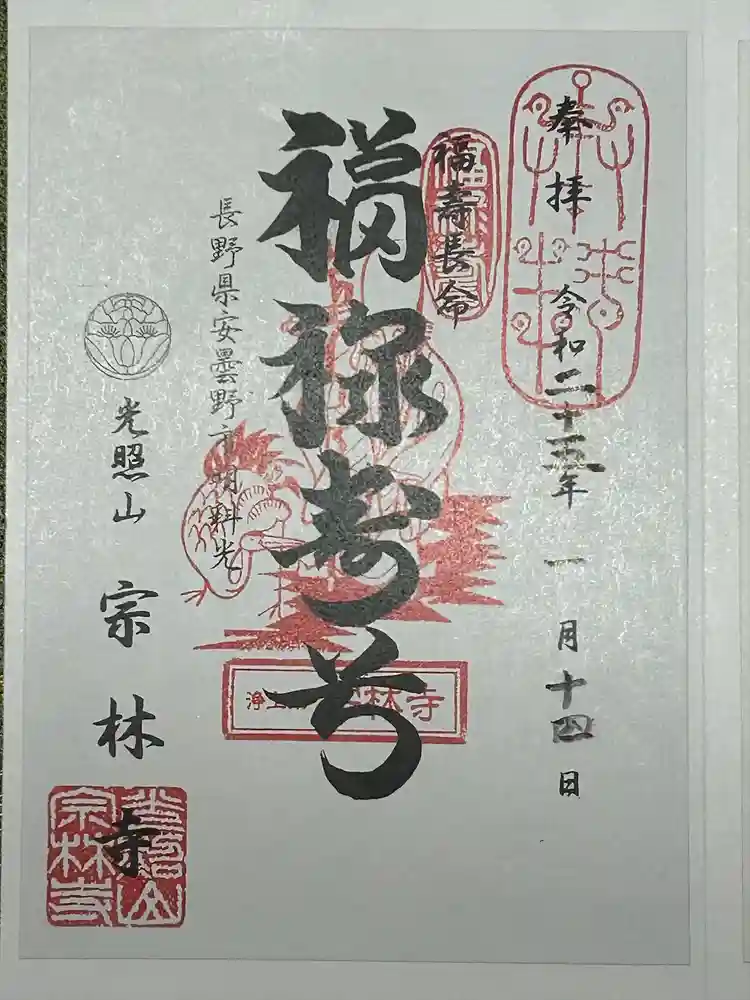 奉拝 令和二十五年 一月十四日
福壽長命
福禄寿
長野県安曇野市明科光
光照山 宗林寺
浄土 林寺
光照山
宗林寺